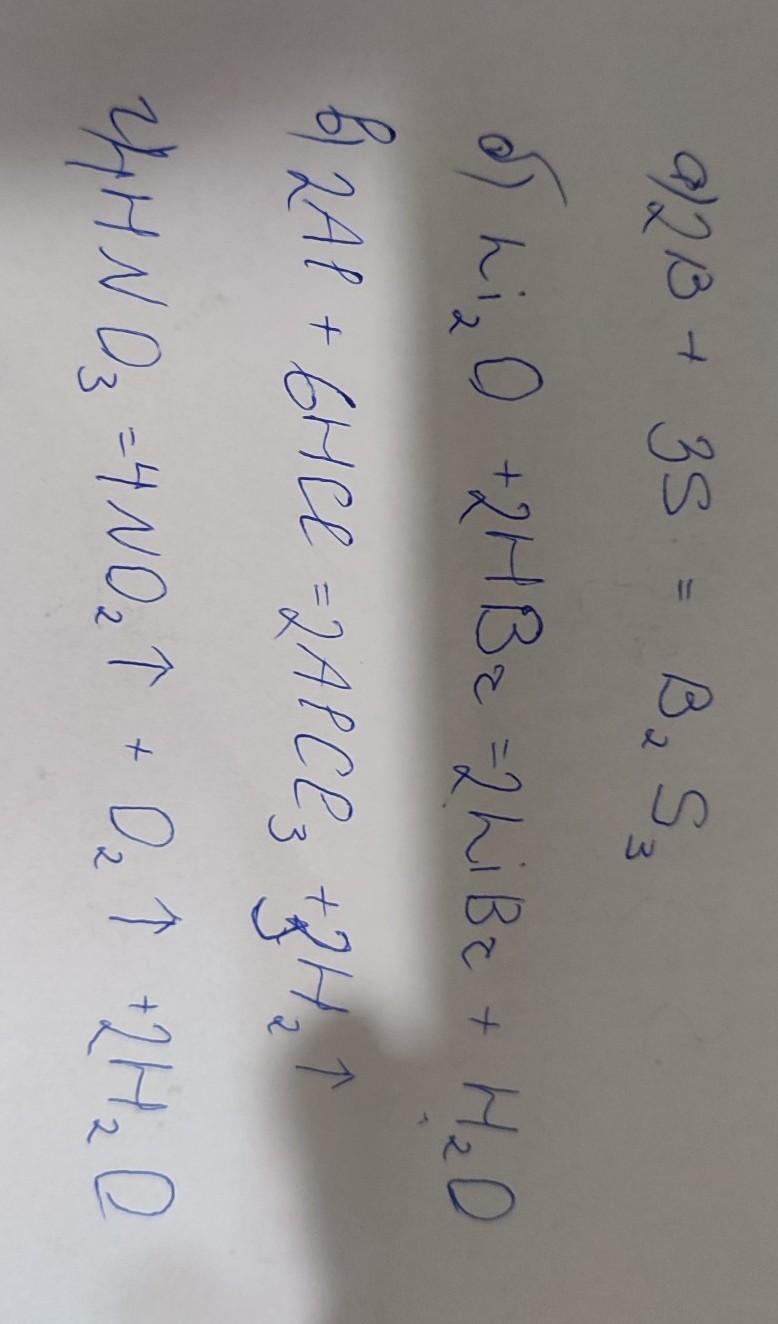 а) 2B + 3S = B₂S₃
б) Li₂O + 2HBr = 2LiBr + H₂O
в) 2Al + 6HCl = 2AlCl₃ + 3H₂↑
г) 4HNO₃ = 4NO₂↑ + O₂↑ + 2H₂O